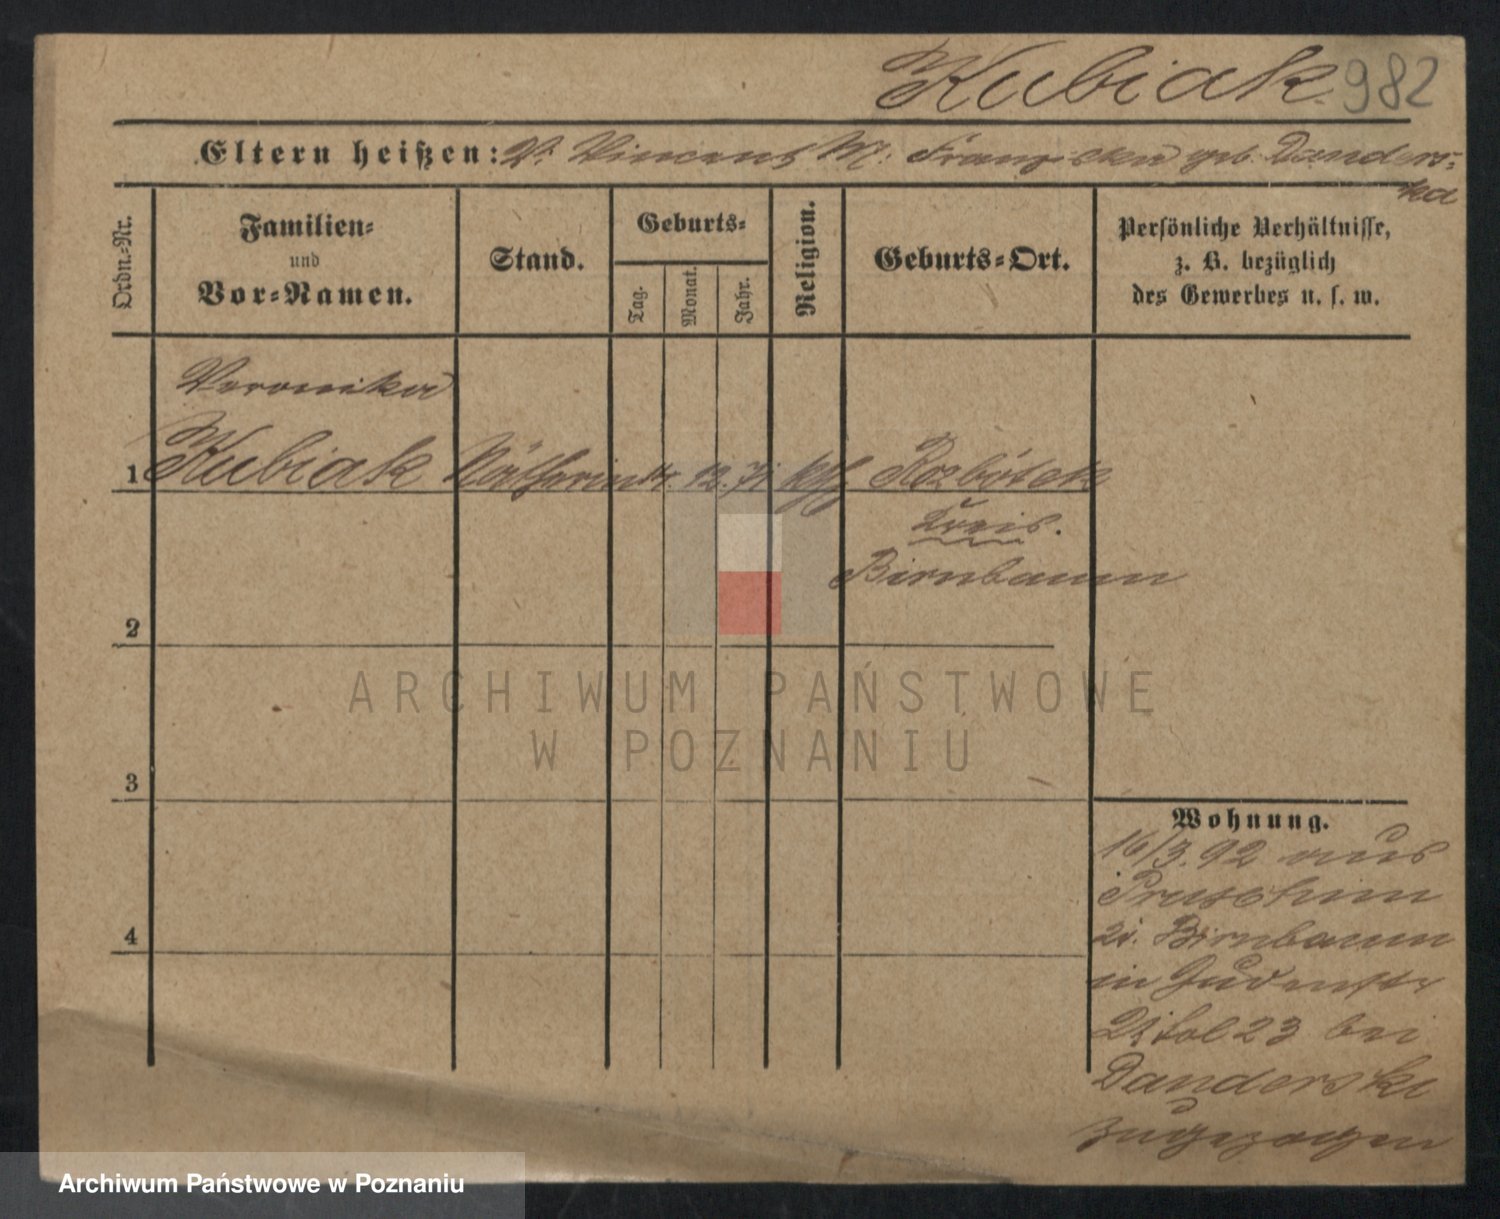 Kubiak. 982
Eltern heißen: V. Vincent M. Franziska geb. Danders-
ka
Ordn.-Nr.
Familien-
und
Vor-Namen.
Stand.
Geburts-
Tag.
Monat.
Jahr.
Religion.
Geburts-Ort.
Persönliche Verhältnisse,
z. B. bezüglich
des Gewerbes u. s. w.
Veronika
1 Kubiak Nätherin 12. 71 kth Rozbitek
Kreis.
Birnbaum
2
3
4
Wohnung.
16/3.92 aus
Pruschim
Birnbaum
in
23 bei
Danderski
zugezogen
ARCHIWUM PAŃSTWOWE
W POZNANIU
Archiwum Państwowe w Poznaniu